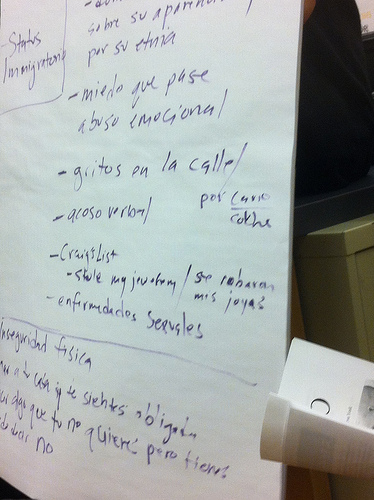 sobre su apariencia/
por su etnia
- Status
Immigratorio
- miedo que pase
abuso emocional
- gritos en la calle/
por carro
coche
- acoso verbal
- Craigslist
- stole my jewelry / se robaron
mis joyas
- enfermedades sexuales
Inseguridad física
a tu casa y te sientes obligada
que tu no quieres pero tienes
no